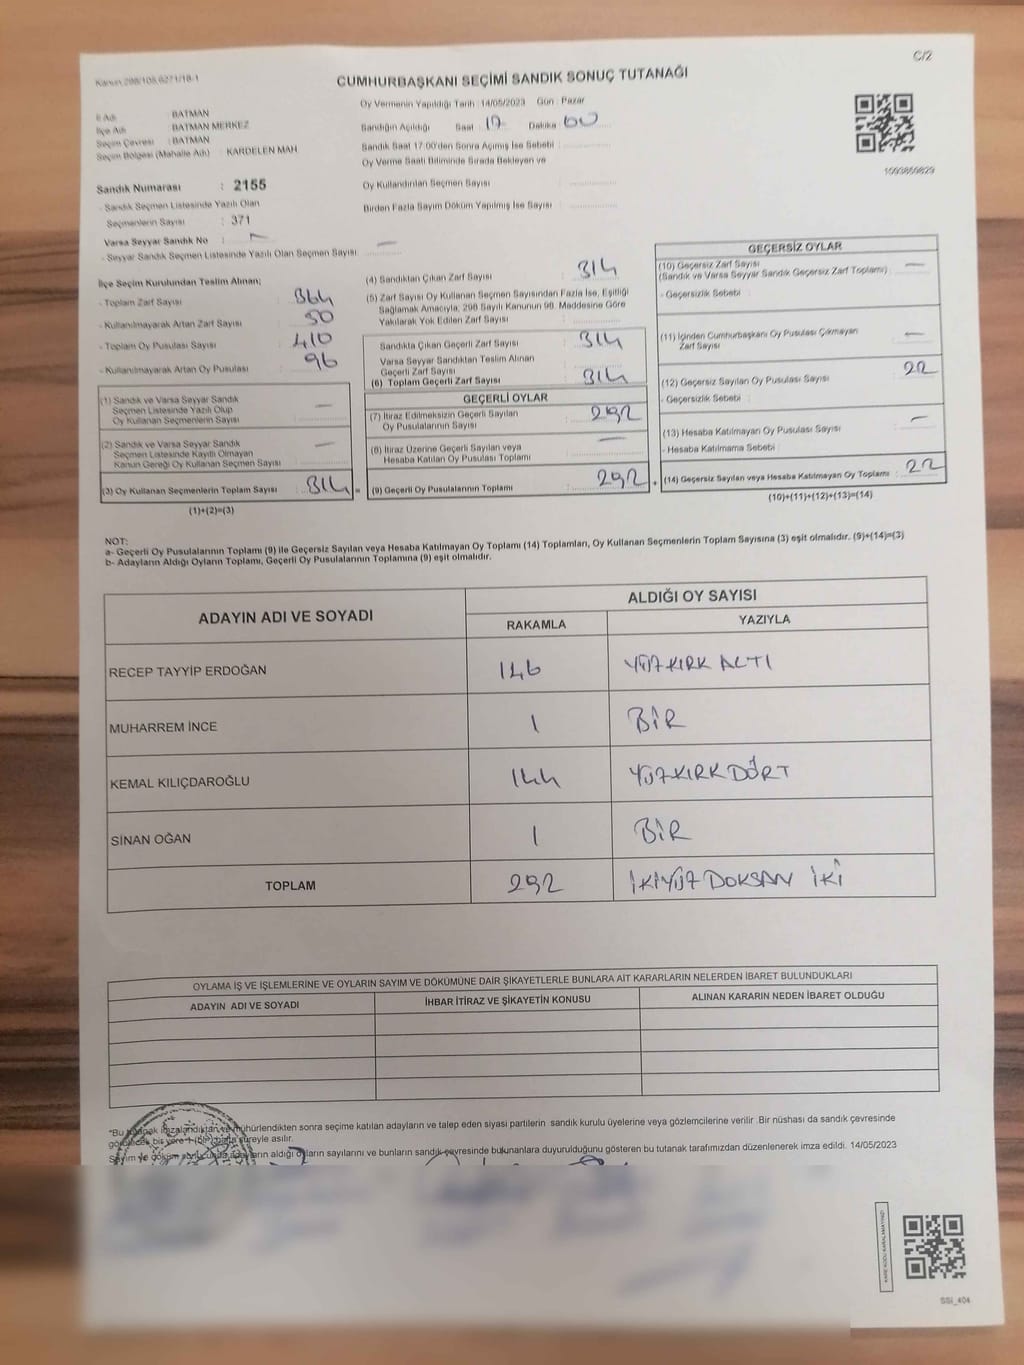 C/2
Kanun 298/105,6271/18-1
CUMHURBAŞKANI SEÇİMİ SANDIK SONUÇ TUTANAĞI
İl Adı : BATMAN
İlçe Adı : BATMAN MERKEZ
Seçim Çevresi : BATMAN
Seçim Bölgesi (Mahalle Adı) : KARDELEN MAH
Sandık Numarası : 2155
- Sandık Seçmen Listesinde Yazılı Olan
Seçmenlerin Sayısı : 371
Varsa Seyyar Sandık No : -
- Seyyar Sandık Seçmen Listesinde Yazılı Olan Seçmen Sayısı : -
Oy Vermenin Yapıldığı Tarih :14/05/2023 Gün : Pazar
Sandığın Açıldığı Saat : 17 Dakika : 00
Sandık Saat 17.00'den Sonra Açımış İse Sebebi :
Oy Verme Saati Bitiminde Sırada Bekleyen ve
Oy Kullandırılan Seçmen Sayısı :
Birden Fazla Sayım Döküm Yapılmış İse Sayısı :
1093859829
İlçe Seçim Kurulundan Teslim Alınan;
- Toplam Zarf Sayısı : 364
- Kullanılmayarak Artan Zarf Sayısı : 50
- Toplam Oy Pusulası Sayısı : 410
- Kullanılmayarak Artan Oy Pusulası : 96
(1) Sandık ve Varsa Seyyar Sandık
Seçmen Listesinde Yazılı Olup
Oy Kullanan Seçmenlerin Sayısı : -
(2) Sandık ve Varsa Seyyar Sandık
Seçmen Listesinde Kayıtlı Olmayan
Kanun Gereği Oy Kullanan Seçmen Sayısı : -
(3) Oy Kullanan Seçmenlerin Toplam Sayısı : 314 =
(1)+(2)=(3)
(4) Sandıktan Çıkan Zarf Sayısı : 314
(5) Zarf Sayısı Oy Kullanan Seçmen Sayısından Fazla İse, Eşitliği
Sağlamak Amacıyla, 298 Sayılı Kanunun 98. Maddesine Göre
Yakılarak Yok Edilen Zarf Sayısı :
Sandıkta Çıkan Geçerli Zarf Sayısı : 314
Varsa Seyyar Sandıktan Teslim Alınan
Geçerli Zarf Sayısı :
(6) Toplam Geçerli Zarf Sayısı : 314
GEÇERLİ OYLAR
(7) İtiraz Edilmeksizin Geçerli Sayılan
Oy Pusulalarının Sayısı : 292
(8) İtiraz Üzerine Geçerli Sayılan veya
Hesaba Katılan Oy Pusulası Toplamı : -
(9) Geçerli Oy Pusulalarının Toplamı : 292 +
GEÇERSİZ OYLAR
(10) Geçersiz Zarf Sayısı : -
(Sandık ve Varsa Seyyar Sandık Geçersiz Zarf Toplamı)
- Geçersizlik Sebebi :
(11) İçinden Cumhurbaşkanı Oy Pusulası Çıkmayan
Zarf Sayısı : -
(12) Geçersiz Sayılan Oy Pusulası Sayısı : 22
- Geçersizlik Sebebi :
(13) Hesaba Katılmayan Oy Pusulası Sayısı : -
- Hesaba Katılmama Sebebi :
(14) Geçersiz Sayılan veya Hesaba Katılmayan Oy Toplamı : 22
(10)+(11)+(12)+(13)=(14)
NOT:
a- Geçerli Oy Pusulalarının Toplamı (9) ile Geçersiz Sayılan veya Hesaba Katılmayan Oy Toplamı (14) Toplamları, Oy Kullanan Seçmenlerin Toplam Sayısına (3) eşit olmalıdır. (9)+(14)=(3)
b- Adayların Aldığı Oyların Toplamı, Geçerli Oy Pusulalarının Toplamına (9) eşit olmalıdır.
ADAYIN ADI VE SOYADI ALDIĞI OY SAYISI
RAKAMLA YAZIYLA
RECEP TAYYİP ERDOĞAN 146 YÜZKIRK ALTI
MUHARREM İNCE 1 BİR
KEMAL KILIÇDAROĞLU 144 YÜZKIRKDÖRT
SİNAN OĞAN 1 BİR
TOPLAM 292 İKİYÜZ DOKSAN İKİ
OYLAMA İŞ VE İŞLEMLERİNE VE OYLARIN SAYIM VE DÖKÜMÜNE DAİR ŞİKAYETLERLE BUNLARA AİT KARARLARIN NELERDEN İBARET BULUNDUKLARI
ADAYIN ADI VE SOYADI İHBAR İTİRAZ VE ŞİKAYETİN KONUSU ALINAN KARARIN NEDEN İBARET OLDUĞU
*Bu tutanak imzalandıktan ve mühürlendikten sonra seçime katılan adayların ve talep eden siyasi partilerin sandık kurulu üyelerine veya gözlemcilerine verilir. Bir nüshası da sandık çevresinde
görülecek bir yere 1 (bir) hafta süreyle asılır.
Sayım ve döküm sonucunda adayların aldığı oyların sayılarını ve bunların sandık çevresinde bulunanlara duyurulduğunu gösteren bu tutanak tarafımızdan düzenlenerek imza edildi. 14/05/2023
KARE KODU KARALAMAYINIZ!
SSI_404